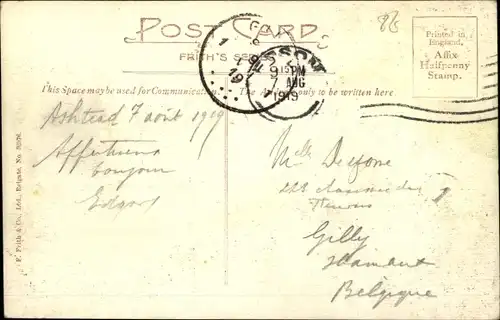 POST CARD
FRITH'S SE
Printed in
England.
Affix
Halfpenny
Stamp.
EPSOM
9 15 PM
7 AUG
1919
This Space may be used for Communication. The Address only to be written here.
Ashtead 7 août 1919
Affectueux
bonjour
Edgard
Mlle
222 Chaussée des
Gilly
Hainaut
Belgique
F. Frith & Co., Ltd., Reigate, No.